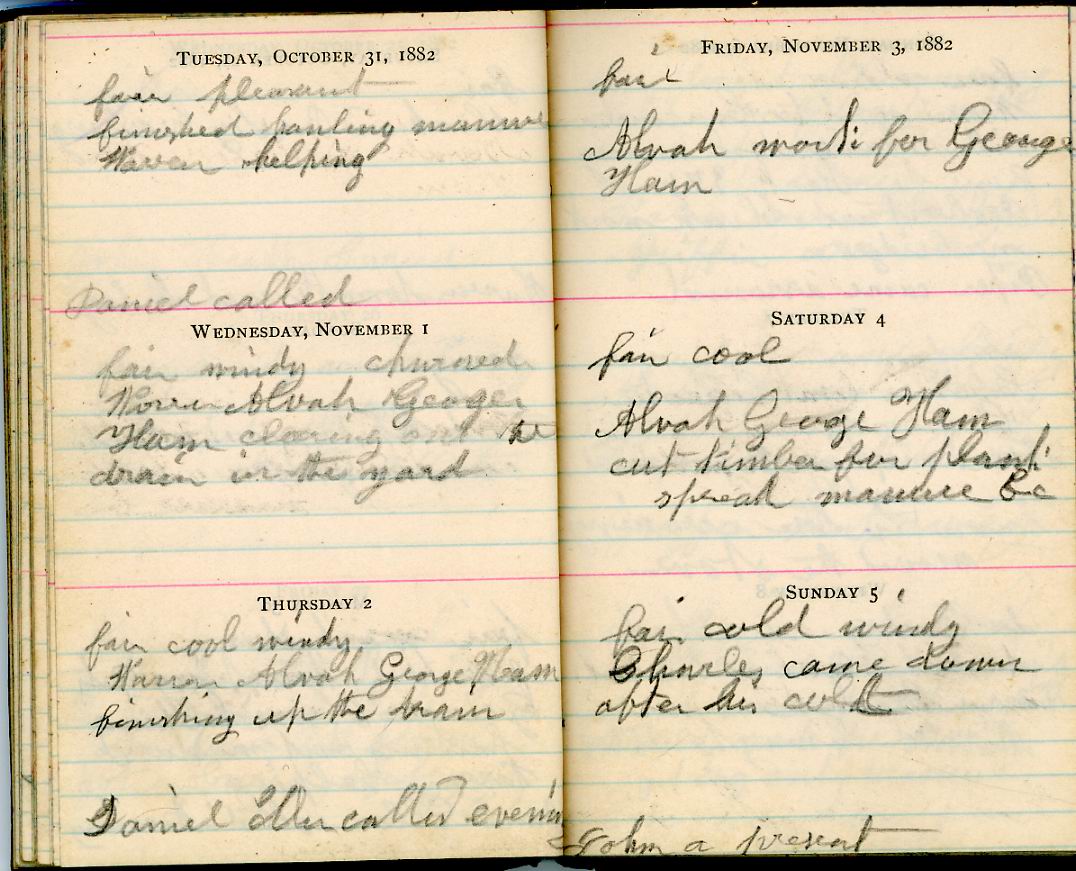 TUESDAY, OCTOBER 31, 1882
fair pleasant
finished hauling manure
helping
Daniel called
WEDNESDAY, NOVEMBER 1
fair windy churned
Alvah George
Ham clearing out the
drain in the yard
THURSDAY 2
fair cool windy
Warren Alvah George Ham
finishing up the drain
Daniel called evening
FRIDAY, NOVEMBER 3, 1882
fair
Alvah work for George
Ham
SATURDAY 4
fair cool
Alvah George Ham
cut timber for
spread manure &c
SUNDAY 5
fair cold windy
Charles came down
after his colt
John a present